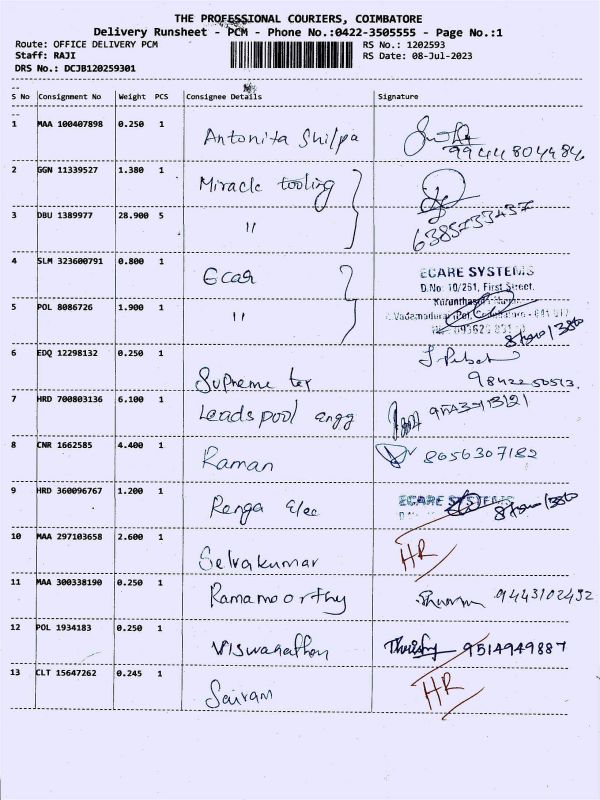 THE PROFESSIONAL COURIERS, COIMBATORE
Delivery Runsheet - PCM - Phone No.:0422-3505555 - Page No.:1
Route: OFFICE DELIVERY PCM RS No.: 1202593
Staff: RAJI RS Date: 08-Jul-2023
DRS No.: DCJB120259301
S No Consignment No Weight PCS Consignee Details Signature
1 MAA 100407898 0.250 1 Antonita Shilpa
9944804484
2 GGN 11339527 1.380 1 Miracle tooling
3 DBU 1389977 28.900 5 "
6385733437
4 SLM 323600791 0.800 1 Ecar ECARE SYSTEMS
D.No: 10/251, First Street,
5 POL 8086726 1.900 1 "
6 EDQ 12298132 0.250 1 Supreme tex
7 HRD 700803136 6.100 1 Leadspool engg
8 CNR 1662585 4.400 1 Raman 8056307182
9 HRD 360096767 1.200 1 Renga Elec ECARE SYSTEMS
10 MAA 297103658 2.600 1 Selvakumar HR
11 MAA 300338190 0.250 1 Ramamoorthy 9443102432
12 POL 1934183 0.250 1 Viswanathan 9514949887
13 CLT 15647262 0.245 1 Sairam HR